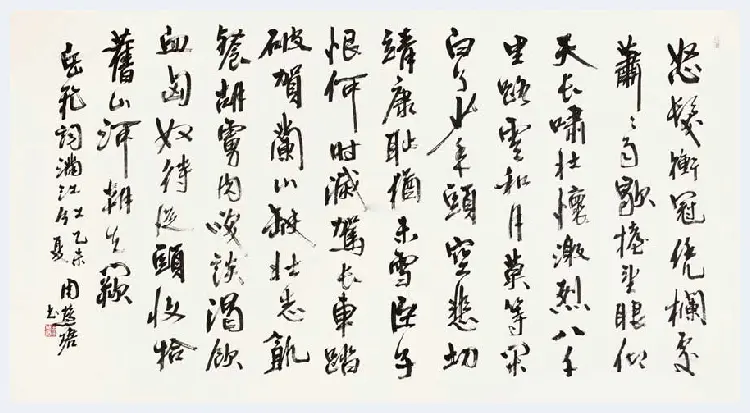 怒髮衝冠凭欄處
蕭々雨歇抬望眼仰
天長嘯壯懷激烈八千
里路雲和月莫等閑
白了少年頭空悲切
靖康恥猶未雪臣子
恨何時滅駕長車踏
破賀蘭山缺壯志飢
餐胡虜肉笑談渴飲
血匈奴待從頭收拾
舊山河朝天闕
岳飛詞滿江紅乙未夏周慧珺書